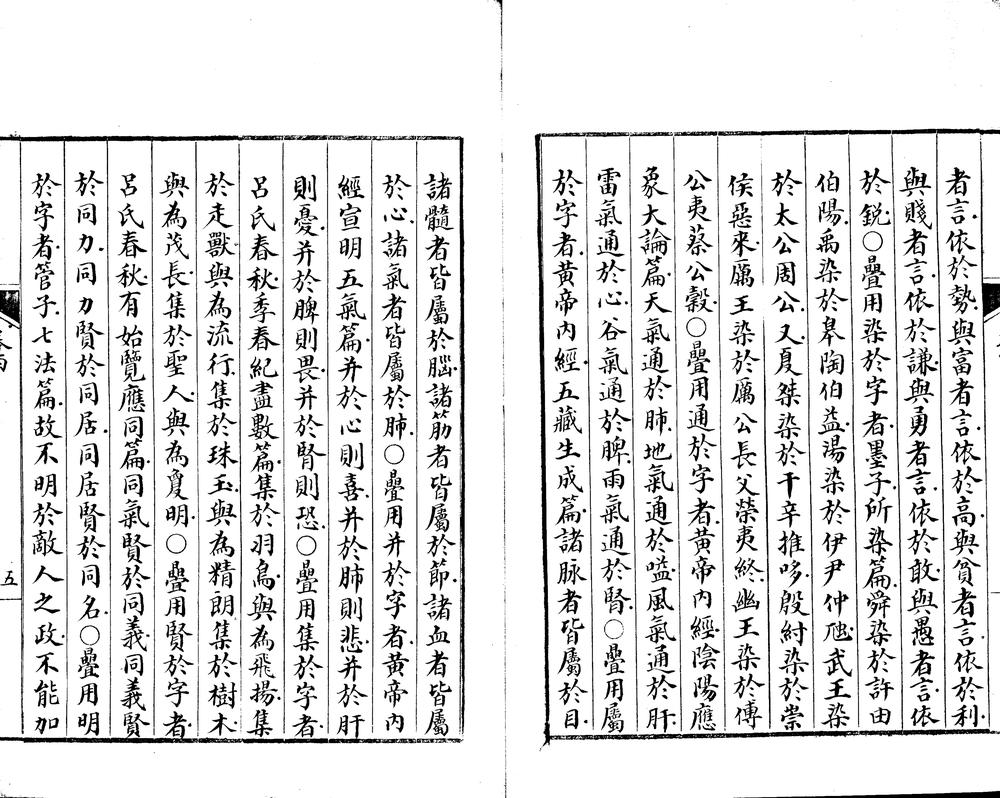 者言依於勢與富者言依於高與貧者言依於利
與賤者言依於謙與勇者言依於敢與愚者言依
於銳○疊用染於字者墨子所染篇舜染於許由
伯陽禹染於皋陶伯益湯染於伊尹仲虺武王染
於太公周公又夏桀染於干辛推哆殷紂染於崇
侯惡來厲王染於厲公長父榮夷終幽王染於傅
公夷蔡公穀○疊用通於字者黃帝內經陰陽應
象大論篇天氣通於肺地氣通於嗌風氣通於肝
雷氣通於心谷氣通於脾雨氣通於腎○疊用屬
於字者黃帝內經五藏生成篇諸脉者皆屬於目
諸髓者皆屬於腦諸筋者皆屬於節諸血者皆屬
於心諸氣者皆屬於肺○疊用并於字者黃帝內
經宣明五氣篇并於心則喜并於肺則悲并於肝
則憂并於脾則畏并於腎則恐○疊用集於字者
呂氏春秋季春紀盡數篇集於羽鳥與為飛揚集
於走獸與為流行集於珠玉與為精朗集於樹木
與為茂長集於聖人與為敻明○疊用賢於字者
呂氏春秋有始覽應同篇同氣賢於同義同義賢
於同力同力賢於同居同居賢於同名○疊用明
於字者管子七法篇故不明於敵人之政不能加
五